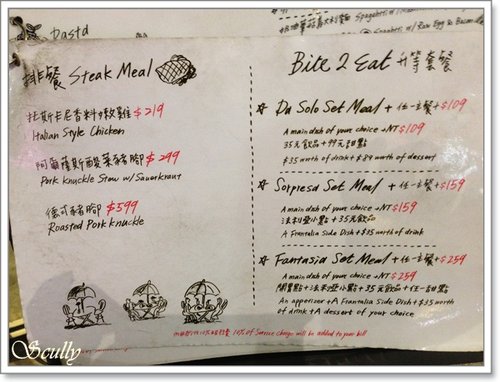 pasta
排餐 Steak Meal
托斯卡尼香料烤雞 $219
Italian Style Chicken
阿爾薩斯酸菜豬腳 $299
Pork Knuckle Stew w/ Sauerkraut
德式豬腳 $599
Roasted Pork Knuckle
Bite 2 Eat 升等套餐
Da Solo Set Meal + 任一主餐 + $109
A main dish of your choice + NT $109
35元飲品 + 89元甜點
$35 worth of drink + $89 worth of dessert
Sorpresa Set Meal + 任一主餐 + $159
A main dish of your choice + NT $159
法利亞小點 + 35元飲品
A Frantalia Side Dish + $35 worth of drink
Fantasia Set Meal + 任一主餐 + $259
A main dish of your choice + NT $259
開胃點 + 法利亞小點 + 35元飲品 + 任一甜點
An appetizer + A Frantalia Side Dish + $35 worth
of drink + A dessert of your choice
10% of Service Charge will be added to your bill
Scully